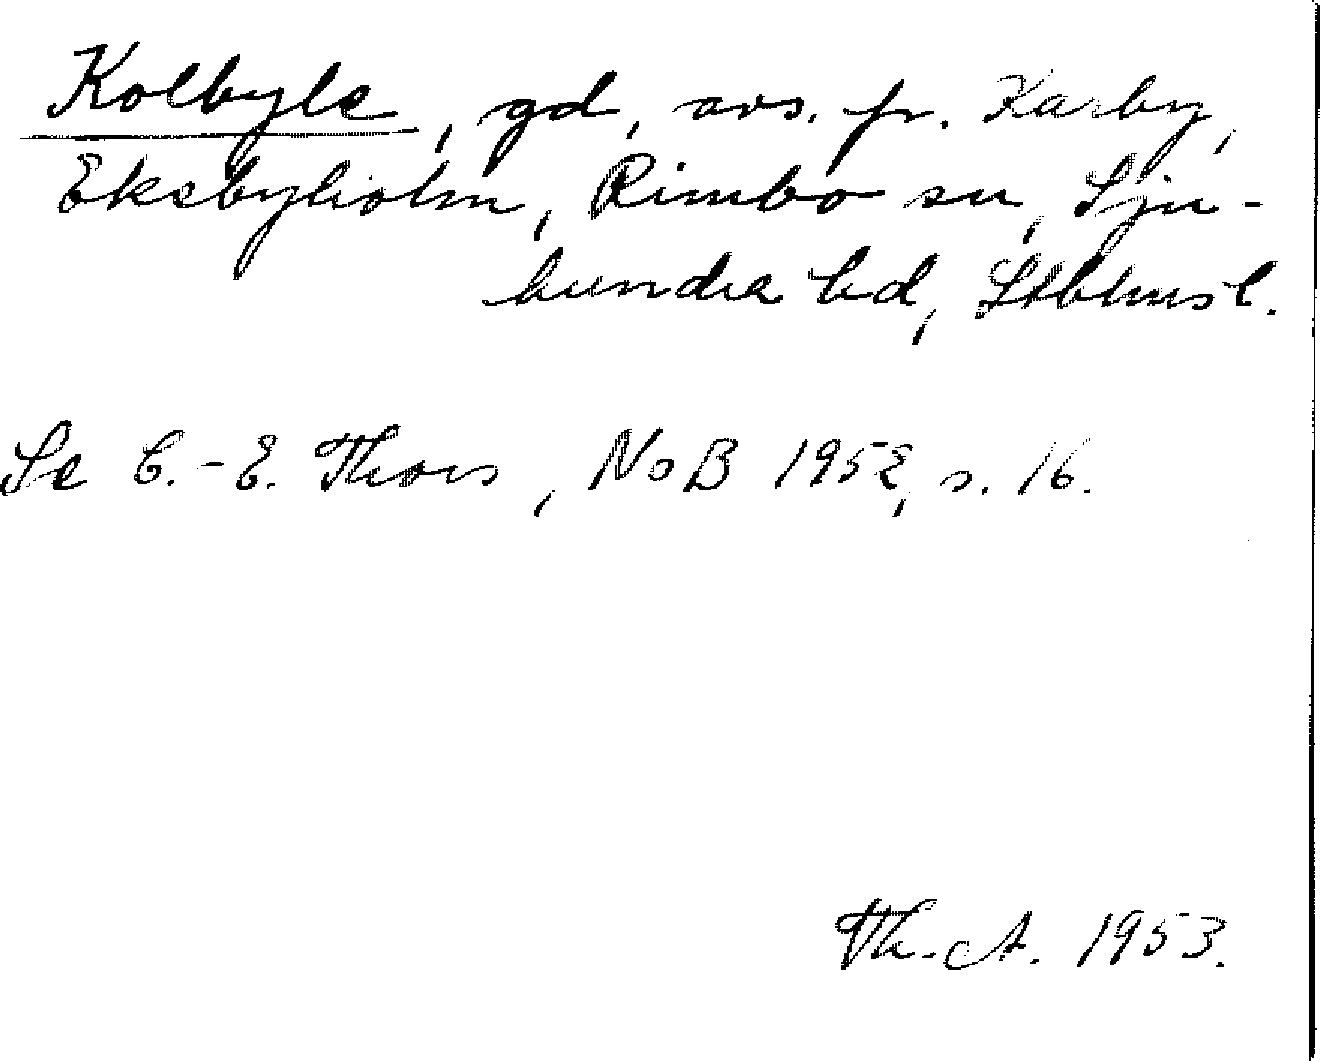 Kolbyle, gd, avs. fr. Karby,
Eksbyholm, Rimbo sn, Sju-
hundra hd, Sthlmsl.
Se C.-E. Thors, NoB 1952, s. 16.
Th. A. 1953.